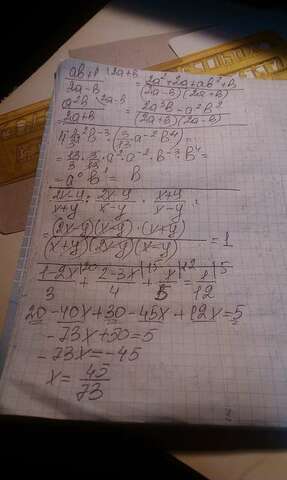 ab+1/2a-B |2a+B = 2a²+2a+aB²+B/(2a-B)(2a+B)
a²B/2a+B |2a-B = 2a³B-a²B²/(2a+B)(2a-B)
4 1/3 a²B⁻³ · (3/13 a⁻² B⁴) =
= 13/3 · 3/13 · a² · a⁻² · B⁻³ · B⁴ =
= a⁰ B¹ = B
2x-y/x+y : 2x-y/x-y · x+y/x-y =
= (2x-y)(x-y)·(x+y)/(x+y)(2x-y)(x-y) = 1
1-2x/3 |20 + 2-3x/4 |15 + x/5 |12 = 1/12 |5
20-40x+30-45x+12x=5
-73x+50=5
-73x=-45
x= 45/73